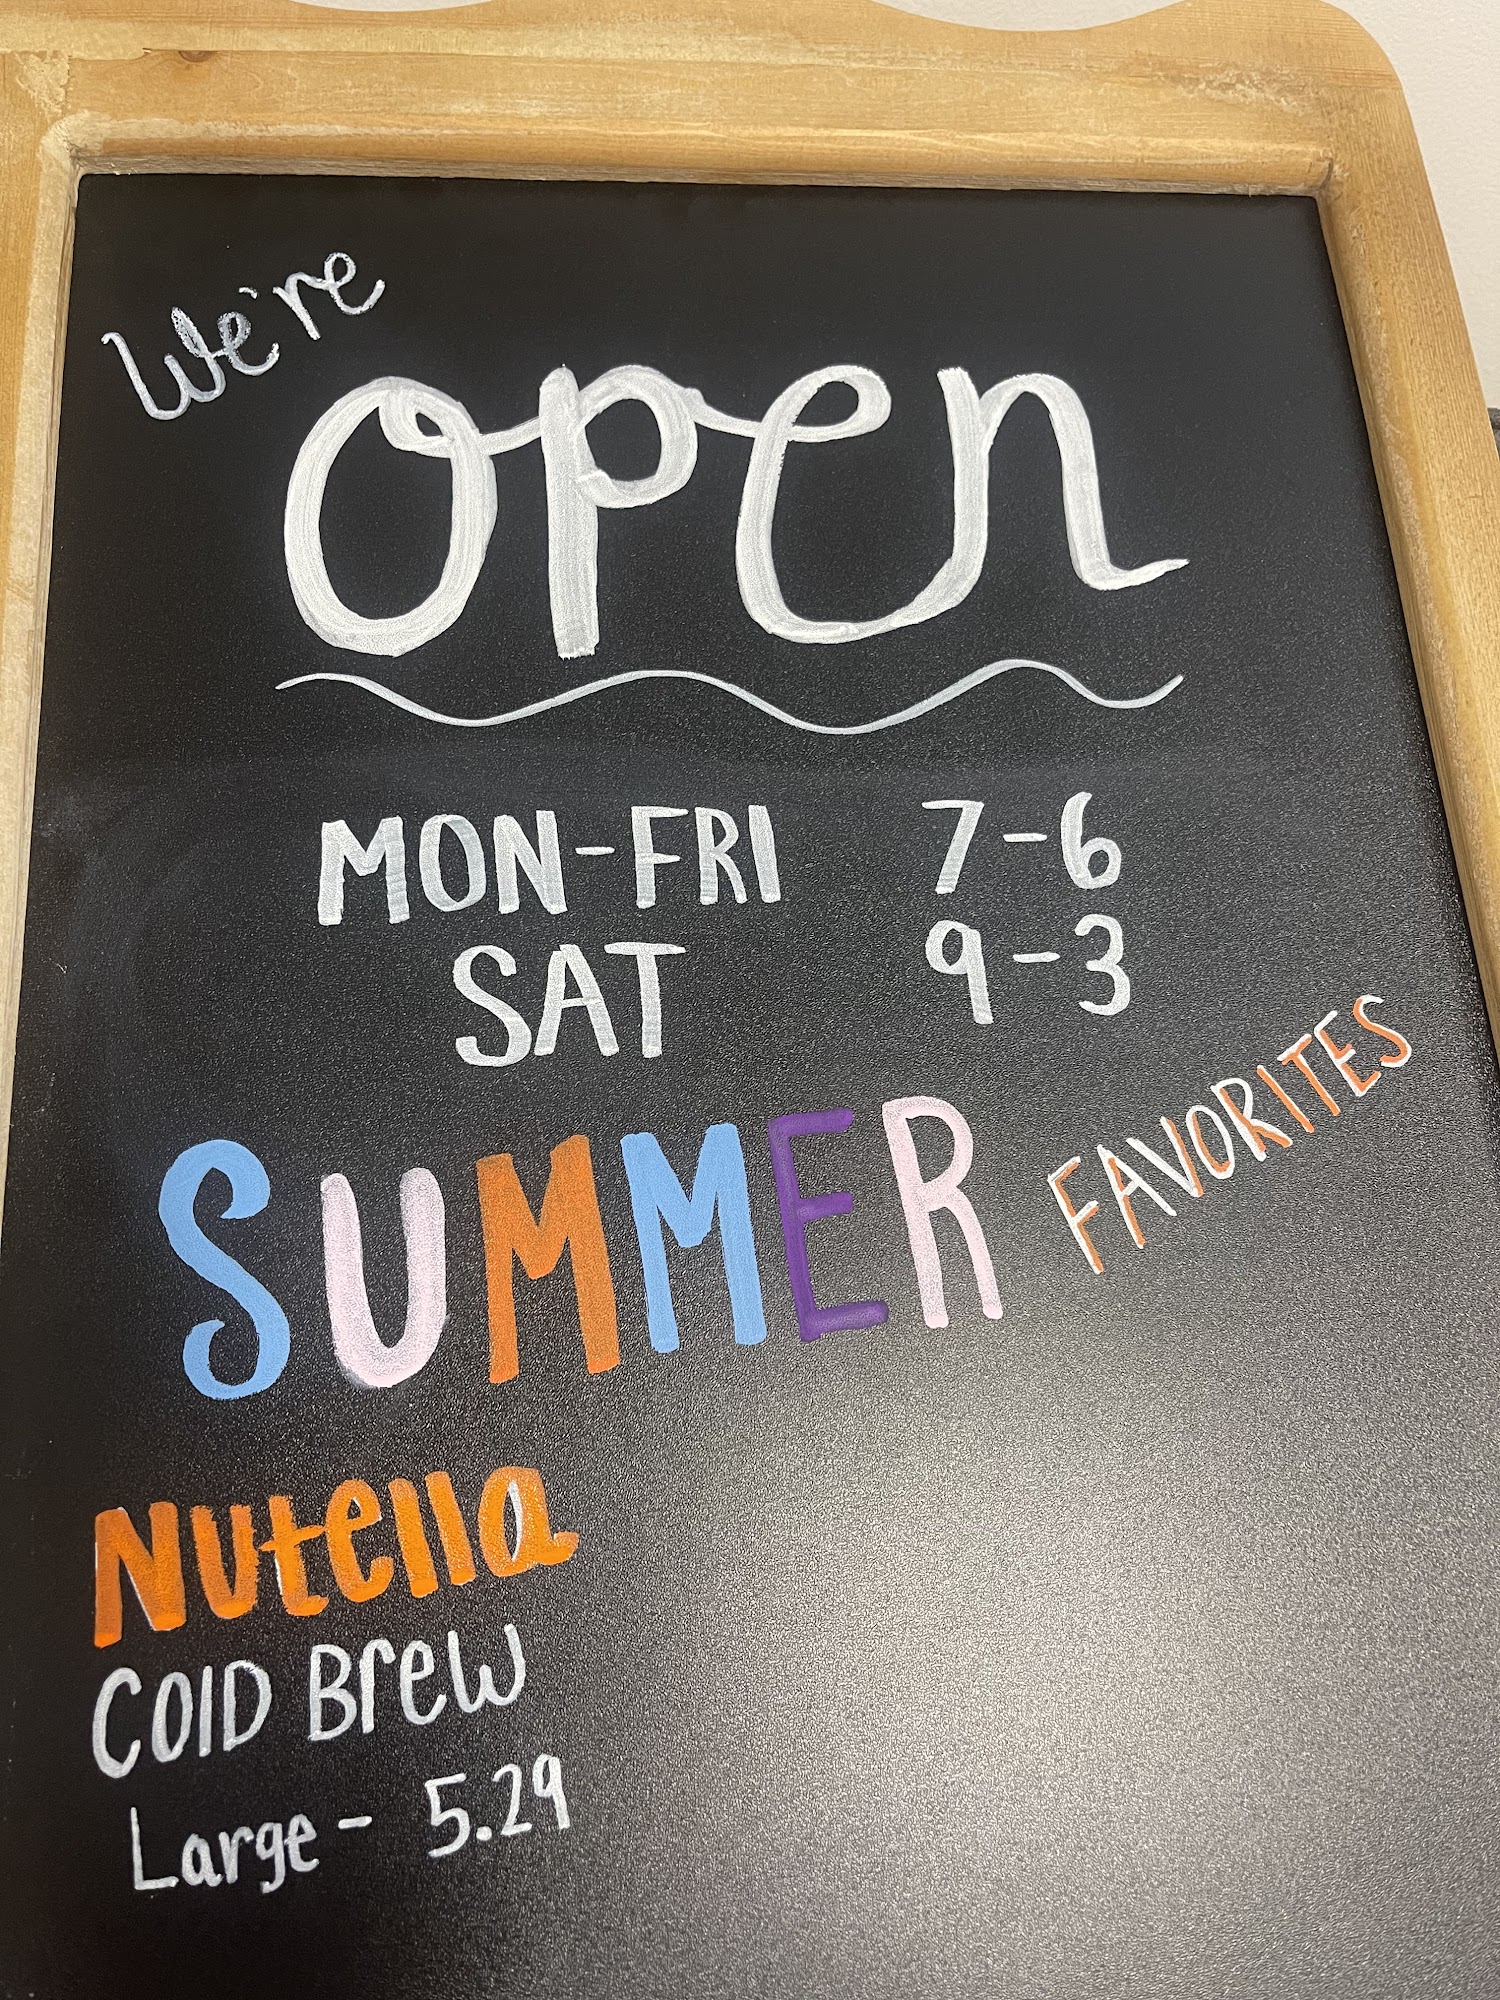 We're
open
MON-FRI 7-6
SAT 9-3
SUMMER FAVORITES
Nutella
COlD Brew
Large - 5.29